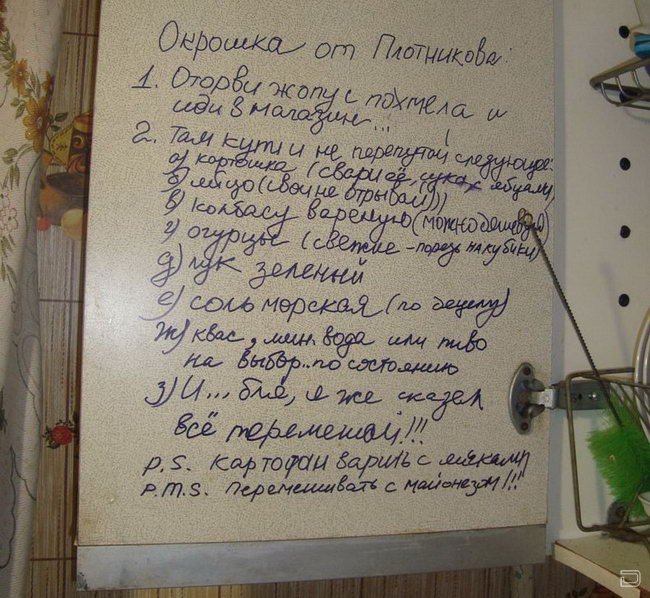 Окрошка от Плотникова:
1. Оторви жопу с похмела и
иди в магазин...
2. Там купи и не перепутай следующее:
а) картошка (свари её, сука с яйцами)
б) яйцо (свои не отрывай))
в) колбасу вареную (можно дешевую)
г) огурцы (свежие - порежь на кубики)
д) лук зеленый
е) соль морская (по децелу)
ж) квас, мин. вода или пиво
на выбор.. по состоянию
з) И... бля, я же сказал
всё перемешай!!!
P.S. картофан варить с яйками
P.M.S. перемешивать с майонезом!!!